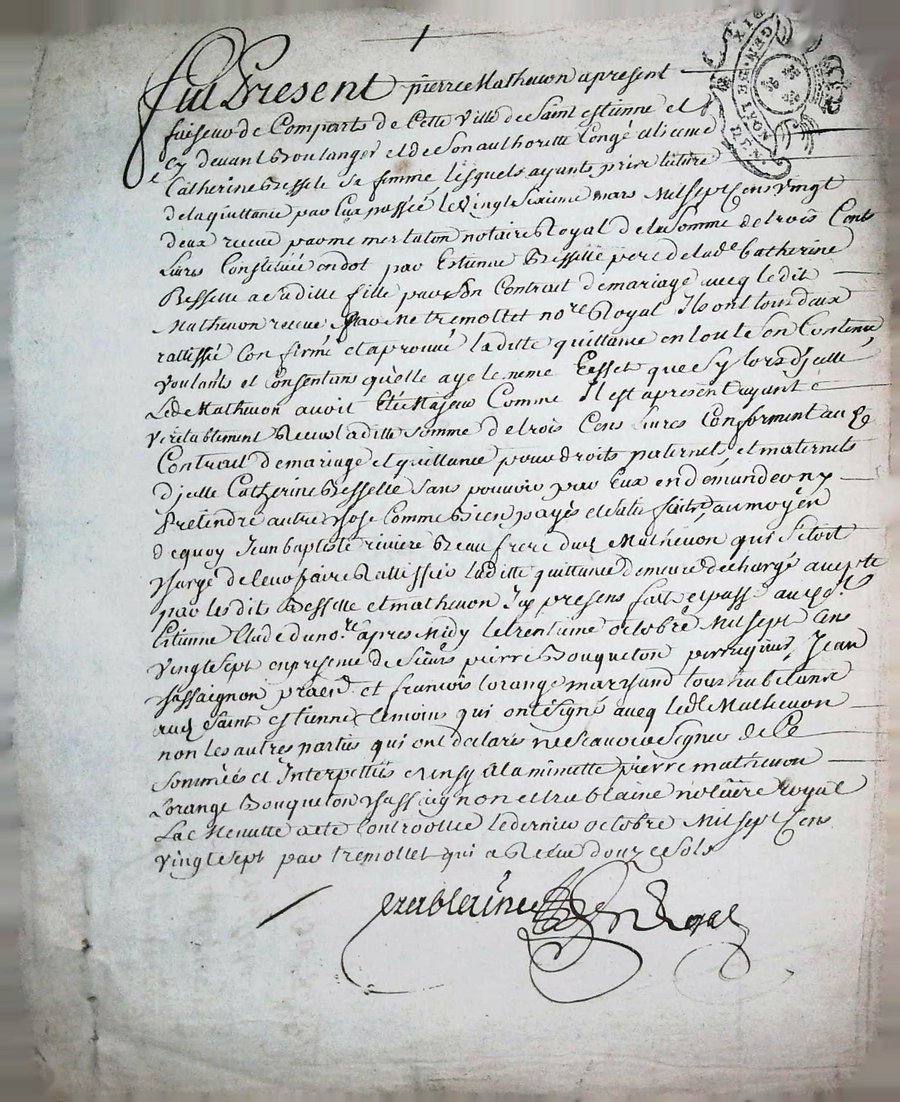 GEN. DE LYON
Fut Present pierre Mathevon apresent
faiseur de Comparts de Cette Ville de Saint estienne et
cy devant Boulanger et de Son authoritté Congé et licence
Catherine Bessete Sa femme Lesquels ayants prise lecture
de la quittance par Eux passée le Vingt Sixieme mars Mil Sept Cens Vingt
deux receue par me notaire Royal de la Somme de trois Cents
Livres Constituée en dot par Estienne Bessette pere de lade Catherine
Bessette a Saditte fille par Son Contrat de mariage aveq le dit
Mathevon receue Par Me tremollet nore Royal Ils ont tous deux
rattissié Confirmé et aprouvé laditte quittance en toute Son Contenu
Voulants et Consentans qu'elle aye le meme Effet que Sy lors d'jcelle
Led. Mathevon avoit Eté Majeur Comme Il est apresent ayant
Veritablement Receu laditte Somme de trois Cens Livres Conforment aud
Contrait de mariage et quittance pour droits paternels et maternels
d'jcelle Catherine Bessette Sans pouvoir par Eux en demander ny
Pretendre autre Chose Comme Bien payés et Satisfaits, au moyen
de quoy Jean baptiste riviere Beau frere dud Mathevon qui S'etoit
Chargé de leur faire Rattissier laditte quittance demeure dechargé
par les dit Bessette et mathevon Icy presens fait et passé aud St
Estienne Etude du nore apres Midy le trentieme octobre Mil Sept Cens
Vingt Sept en presence de Sieurs pierre Bouqueton perruquier, Jean
Chassaignon praen et francois Lorange marchand tous habitans
aud Saint estienne temoins qui ont Signé aveq led Mathevon
non les autres parties qui ont declaré ne Scavoir Signer de Ce
Sommées et Interpellés ainsy a la minutte pierre mathevon
Lorange Bouqueton Chassaignon et trablaine notaire royal
La Minutte a eté Controollée le dernier octobre Mil Sept Cens
Vingt Sept par tremollet qui a Receu douze Sols
trablaine Nre Royal